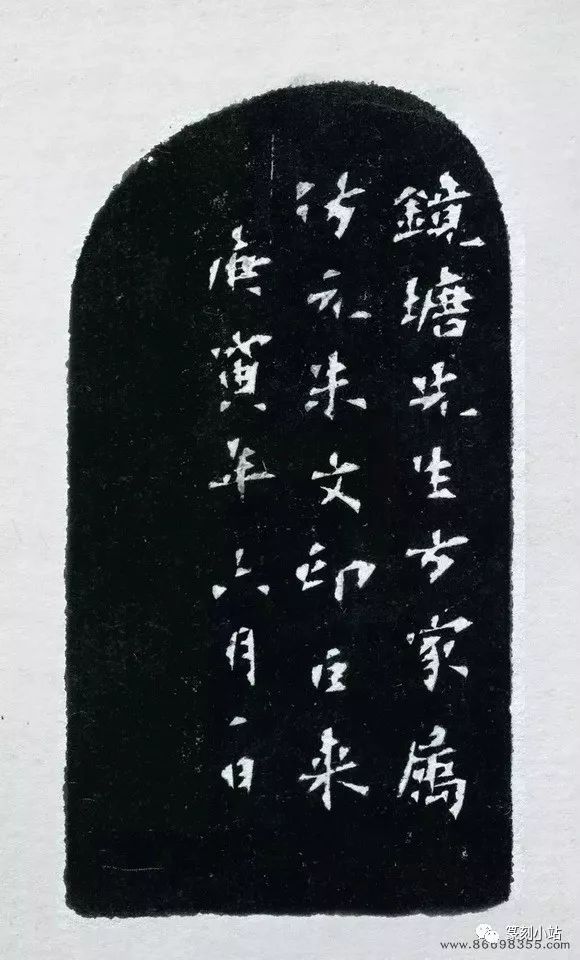 鏡塘先生方家属
仿元朱文印巨来
庚寅年六月一日
篆刻小站
www.86698355.com